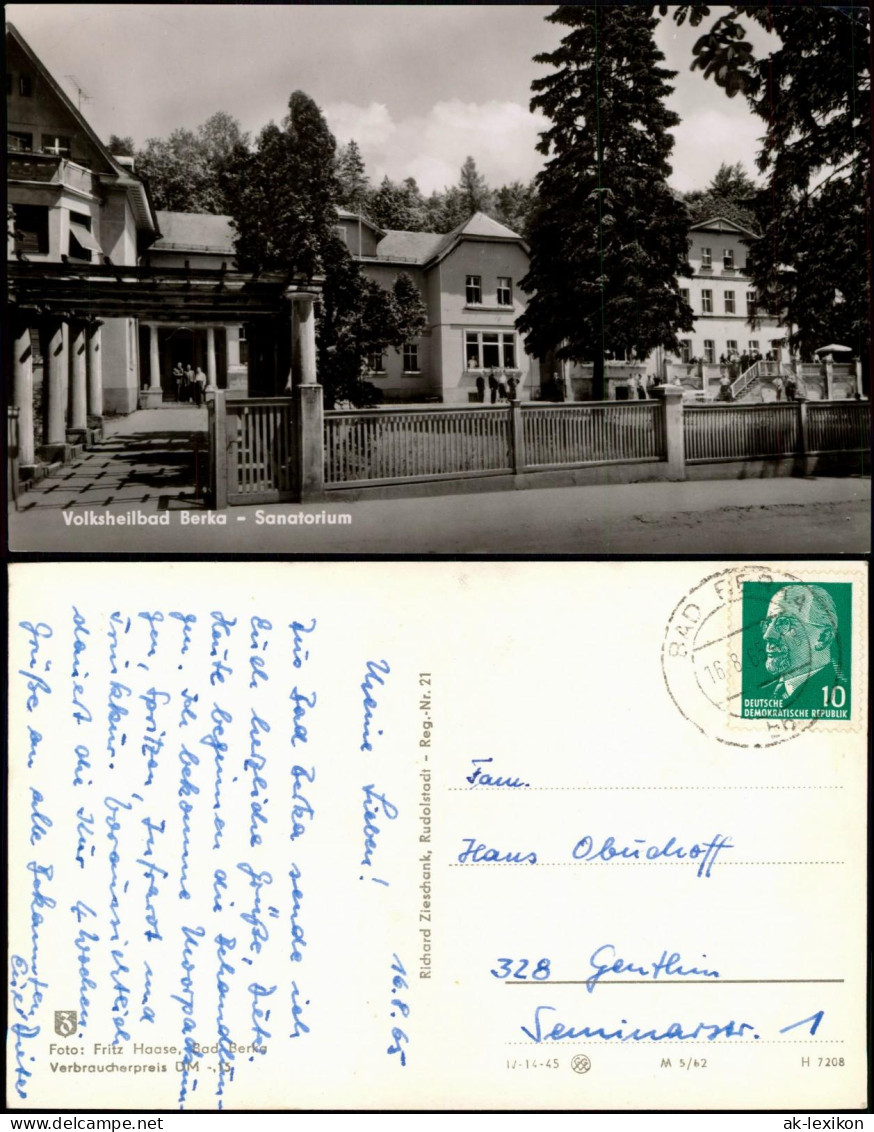 Volksheilbad Berka - Sanatorium
16.8.65
Meine Lieben!
Aus Bad Berka sende ich
Euch herzliche Grüße, Dieter.
Heute beginnen die Behandlun-
gen. Ich bekomme Moorpackun-
gen, Spritzen, Infrarot und
Trinkkur. Voraussichtlich
dauert die Kur 4 Wochen.
Grüße an alle Bekannten
Euer Dieter
Foto: Fritz Haase, Bad Berka
Verbraucherpreis DM -,15
Richard Zieschank, Rudolstadt - Reg.-Nr. 21
BAD BERKA
16.8.65
10
DEUTSCHE
DEMOKRATISCHE REPUBLIK
Fam.
Hans Obudhoff
328 Genthin
Seminarstr. 1
IV-14-45 M 5/62 H 7208
ak-lexikon
ak-lexikon.com